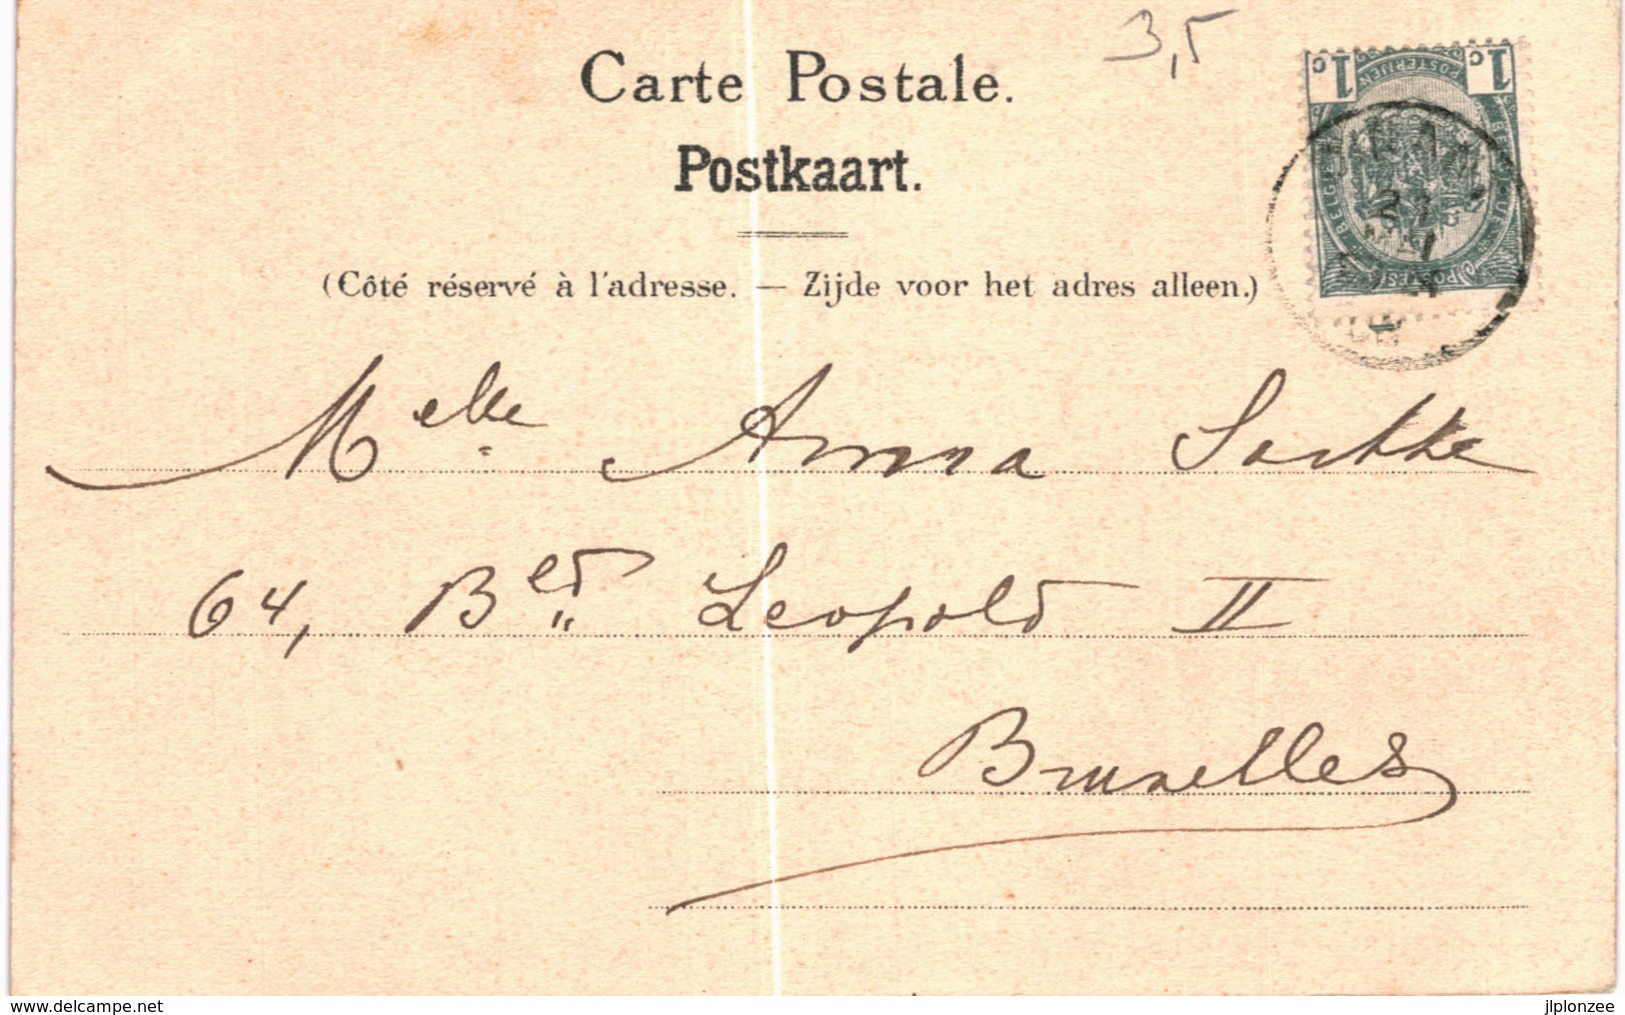 3,5
Carte Postale.
Postkaart.
(Côté réservé à l'adresse. — Zijde voor het adres alleen.)
1c 1c
POSTERIJEN
Melle Anna
64, Bld Leopold II
Bruxelles
www.delcampe.net
jlplonzee